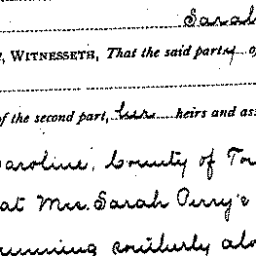 Sarah
, WITNESSETH, That the said party of
of the second part, her heirs and ass
Caroline, County of
at Mrs. Sarah Perry's
running southerly alo